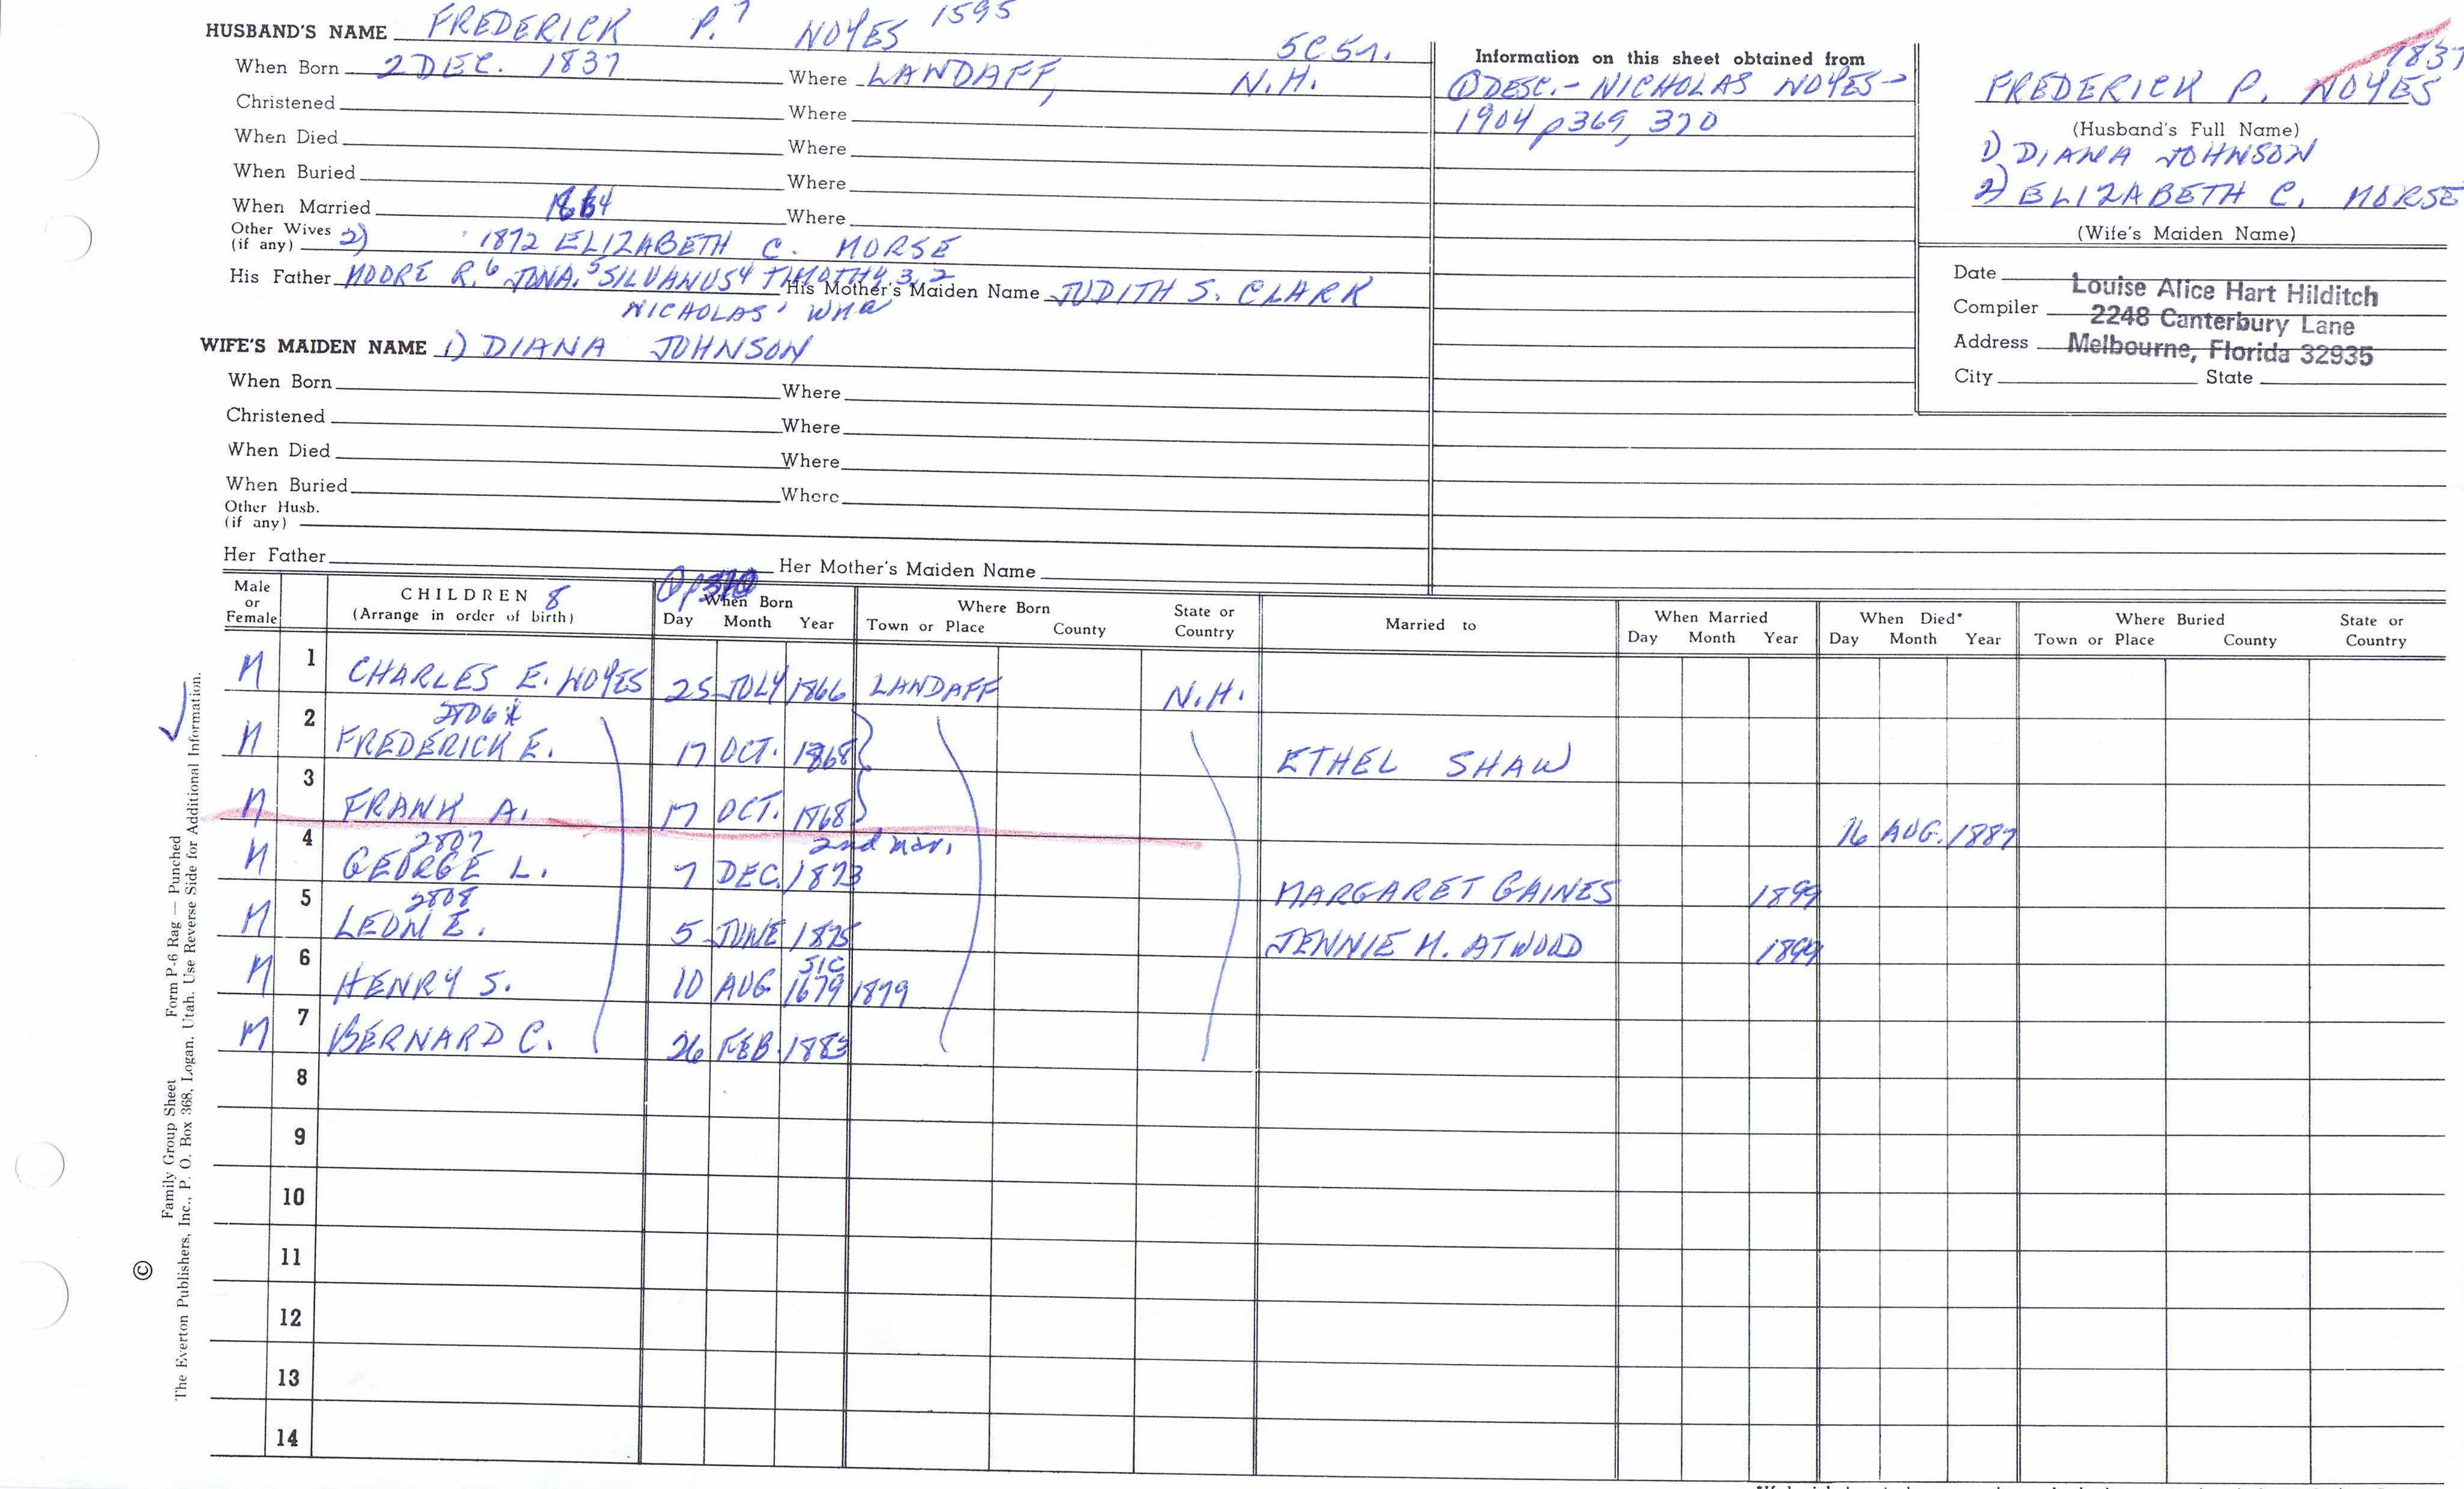 HUSBAND'S NAME FREDERICK P. 7 NOYES 1595 5C5r.
When Born 2 DEC. 1837 Where LANDAFF, N.H.
Christened Where
When Died Where
When Buried Where
When Married 1864 Where
Other Wives (if any) 2) 1872 ELIZABETH C. MORSE
His Father MOORE R.6 JONA.5 SILVANUS4 TIMOTHY 3, 2 His Mother's Maiden Name JUDITH S. CLARK
NICHOLAS' Wm
WIFE'S MAIDEN NAME 1) DIANA JOHNSON
When Born Where
Christened Where
When Died Where
When Buried Where
Other Husb. (if any)
Her Father Her Mother's Maiden Name
Information on this sheet obtained from
① DESC.- NICHOLAS NOYES-
1904 p369, 370
1837
FREDERICK P. NOYES
(Husband's Full Name)
1) DIANA JOHNSON
2) ELIZABETH C. MORSE
(Wife's Maiden Name)
Date
Louise Alice Hart Hilditch
Compiler
2248 Canterbury Lane
Address Melbourne, Florida 32935
City State
Male or Female CHILDREN 8 (Arrange in order of birth) ① p370 When Born Day Month Year Where Born Town or Place County State or Country Married to When Married Day Month Year When Died* Day Month Year Where Buried Town or Place County State or Country
M 1 CHARLES E. NOYES 25 JULY 1866 LANDAFF N.H.
2806 x
M 2 FREDERICK E. 17 OCT. 1868 ETHEL SHAW
M 3 FRANK A. 17 OCT. 1868 16 AUG. 1887
2807 2nd mar.
M 4 GEORGE L. 7 DEC. 1873 MARGARET GAINES 1899
2808
M 5 LEON E. 5 JUNE 1875 JENNIE M. ATWOOD 1899
SIC
M 6 HENRY S. 10 AUG 1679 1879
M 7 BERNARD C. 26 FEB. 1883
8
9
10
11
12
13
14
©
Family Group Sheet Form P-6 Rag — Punched
The Everton Publishers, Inc., P. O. Box 368, Logan, Utah. Use Reverse Side for Additional Information.